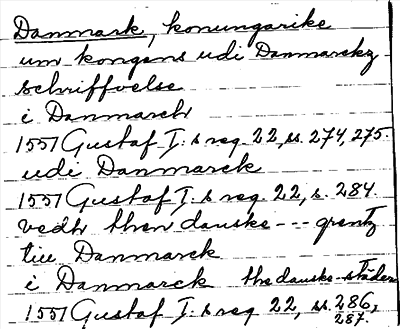 Danmark, konungarike
um kongens udi Danmarckz
schriffvelse
i Danmarch
1551 Gustaf I:s reg. 22, ss. 274, 275.
udi Danmarck
1551 Gustaf I:s reg. 22, s. 284.
vedh then danske --- grentz
till Danmarck
i Danmarck the danske städer
1551 Gustaf I:s reg 22, ss. 286,
287.